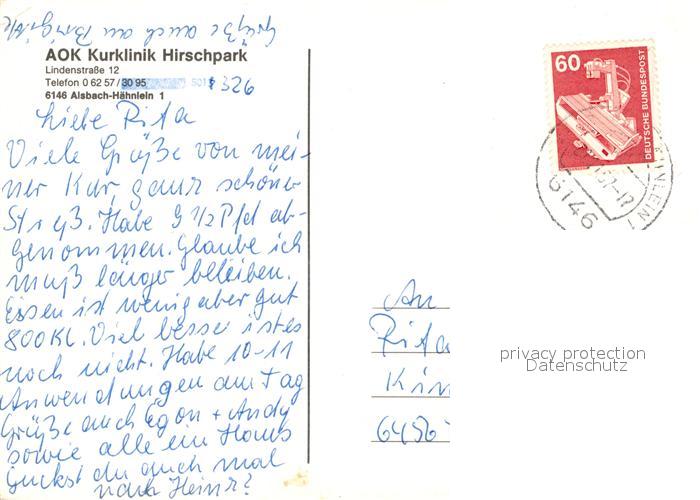 Grüße auch an
AOK Kurklinik Hirschpark
Lindenstraße 12
Telefon 0 62 57 / 30 95 326
6146 Alsbach-Hähnlein 1
Liebe Rita
Viele Grüße von mei-
ner Kur, ganz schöner
Streß. Habe 9 ½ Pfd ab-
genommen. Glaube ich
muß länger bleiben.
Essen ist wenig aber gut
800 Kl. Viel besser ist es
noch nicht. Habe 10-11
Anwendungen am Tag
Grüße auch Egon + Andy
sowie alle im Haus
Guckst du auch mal
nach Heinz?
60
DEUTSCHE BUNDESPOST
6146
An
Rita
Kin
6456
privacy protection
Datenschutz